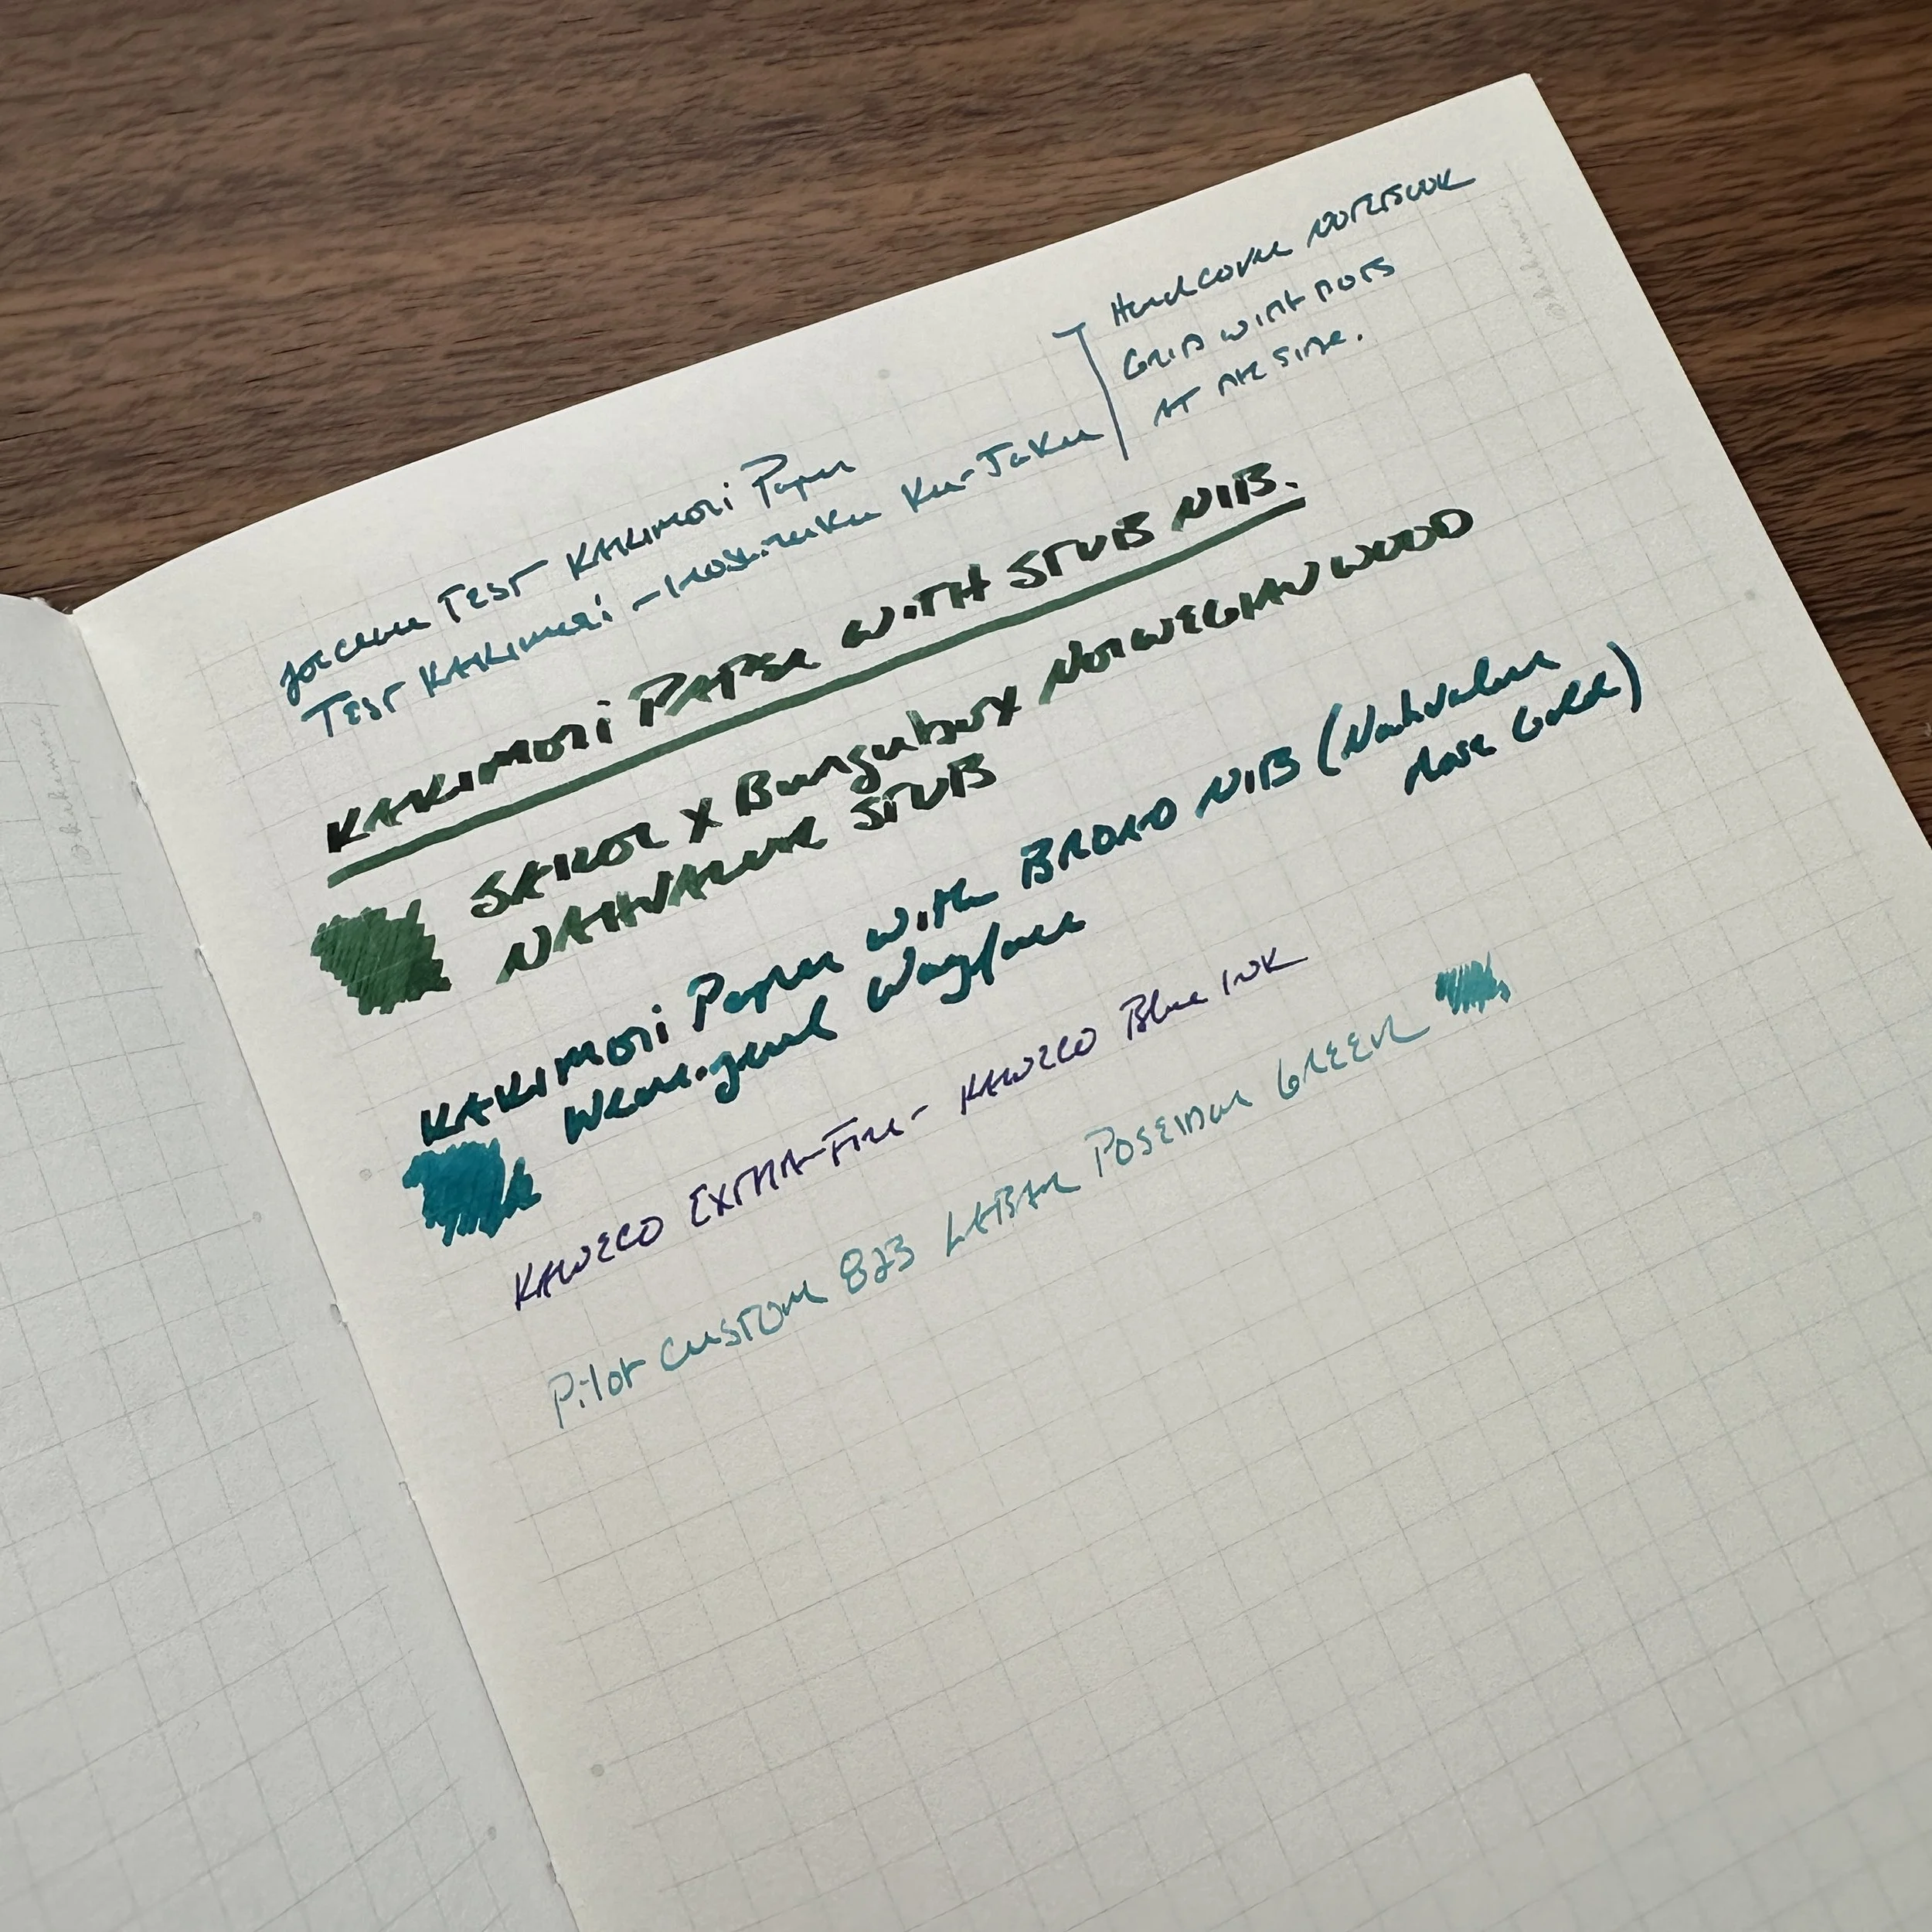 Test Kakimori Paper
Test Kakimori - Iroshizuku Ku-Jaku
Hardcover notebook
Grid with dots
at the side.
KAKIMORI PAPER WITH STUB NIB.
SAILOR X Bungubox NORWEGIAN WOOD
NAHVALUR STUB
KAKIMORI Paper with BROAD NIB (Nahvalur
Rose Gold)
Wearingeul Wayfarer
KAWECO EXTRA-Fine - KAWECO Blue INK
Pilot Custom 823 LABAN POSEIDON GREEN
kakimori
kakimori